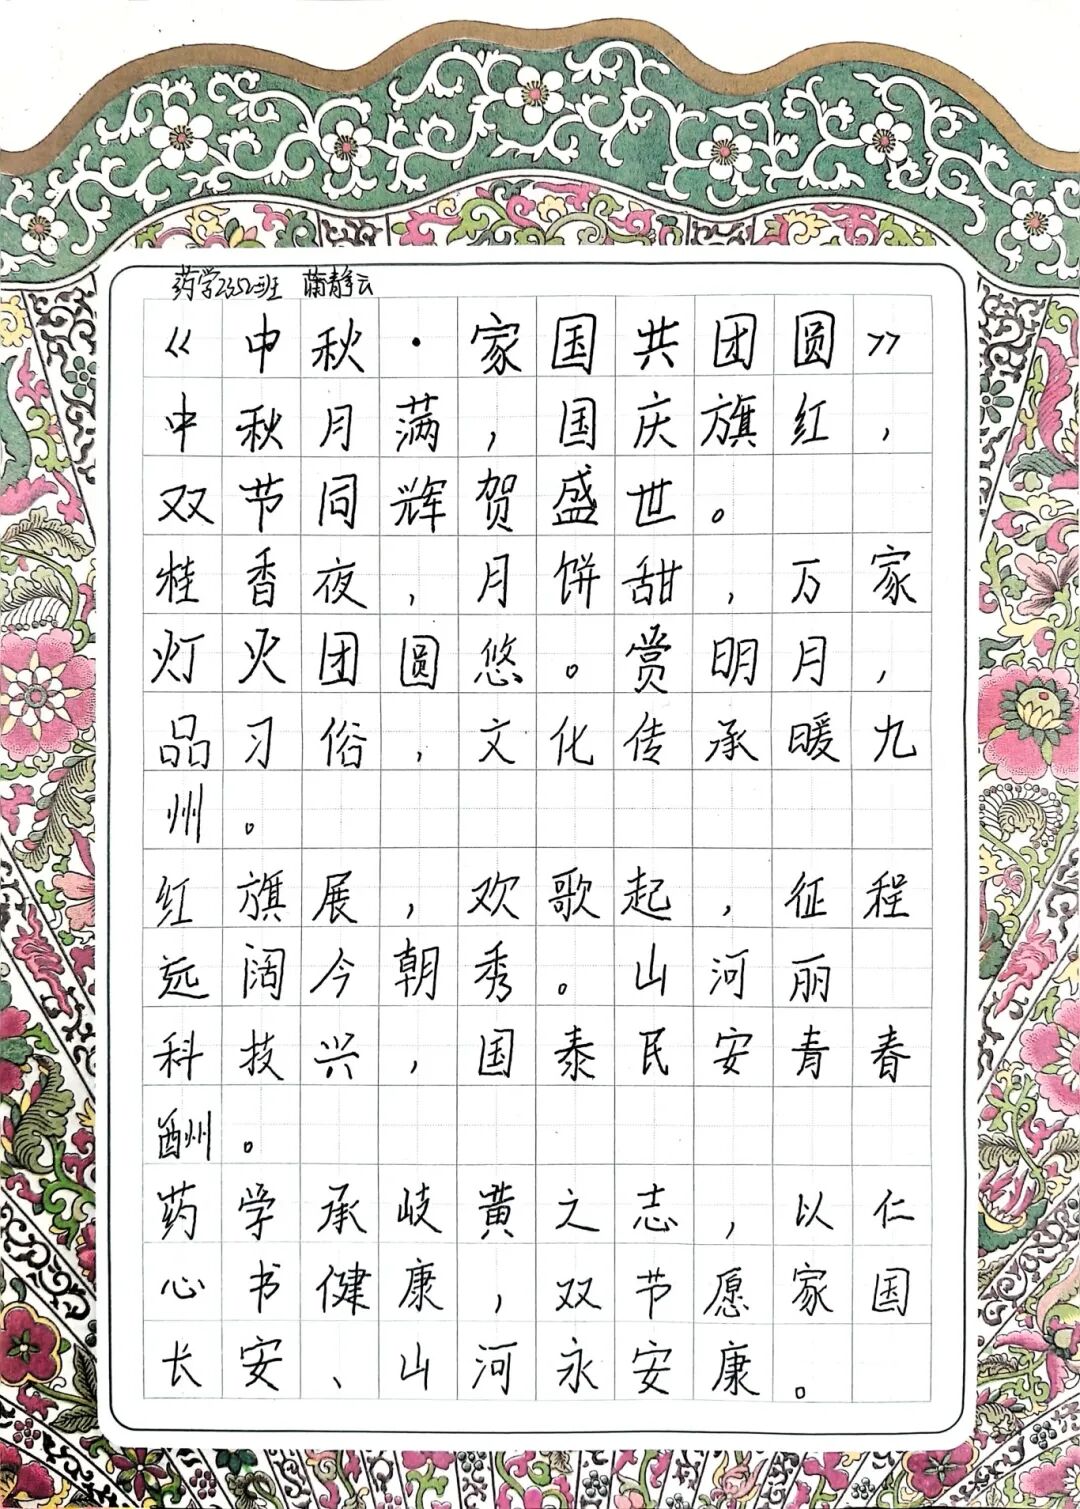 药学2352班 蒲静云
《中秋·家国共团圆》
中秋月满，国庆旗红，
双节同辉贺盛世。
桂香夜，月饼甜，万家
灯火团圆悠。赏明月，
品习俗，文化传承暖九
州。
红旗展，欢歌起，征程
远阔今朝秀。山河丽
科技兴，国泰民安青春
酬。
药学承岐黄之志，以仁
心书健康，双节愿家国
长安、山河永安康。